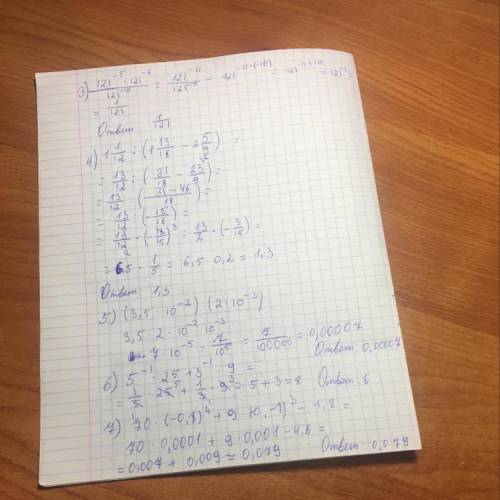 3) 121⁻⁵ · 121⁻⁶ / 121⁻¹⁰ = 121⁻¹¹ / 121⁻¹⁰ = 121⁻¹¹⁻⁽⁻¹⁰⁾ = 121⁻¹¹⁺¹⁰ = 121⁻¹ =
= 1/121
Ответ: 1/121
4) 1 1/12 : (1 13/18 - 2 5/9) =
= 13/12 : (31/18 - 23/9) =
= 13/12 : (31-46/18) =
= 13/12 : (-15/18) =
= 6,5 · 1/5 = 6,5 · 0,2 = 1,3
Ответ: 1,3
5) (3,5 · 10⁻²) (2 · 10⁻³)
3,5 · 2 · 10⁻² · 10⁻³
7 · 10⁻⁵ = 7/10⁵ = 7/100000 = 0,00007
Ответ: 0,00007
6) 5⁻¹ · 25 + 3⁻¹ · 9 =
= 1/5 · 25 + 1/3 · 9 = 5 + 3 = 8 Ответ: 8
70 · 0,0001 + 9 · 0,001 - 4,8 =
= 0,007 + 0,009 = 0,079
Ответ: 0,079